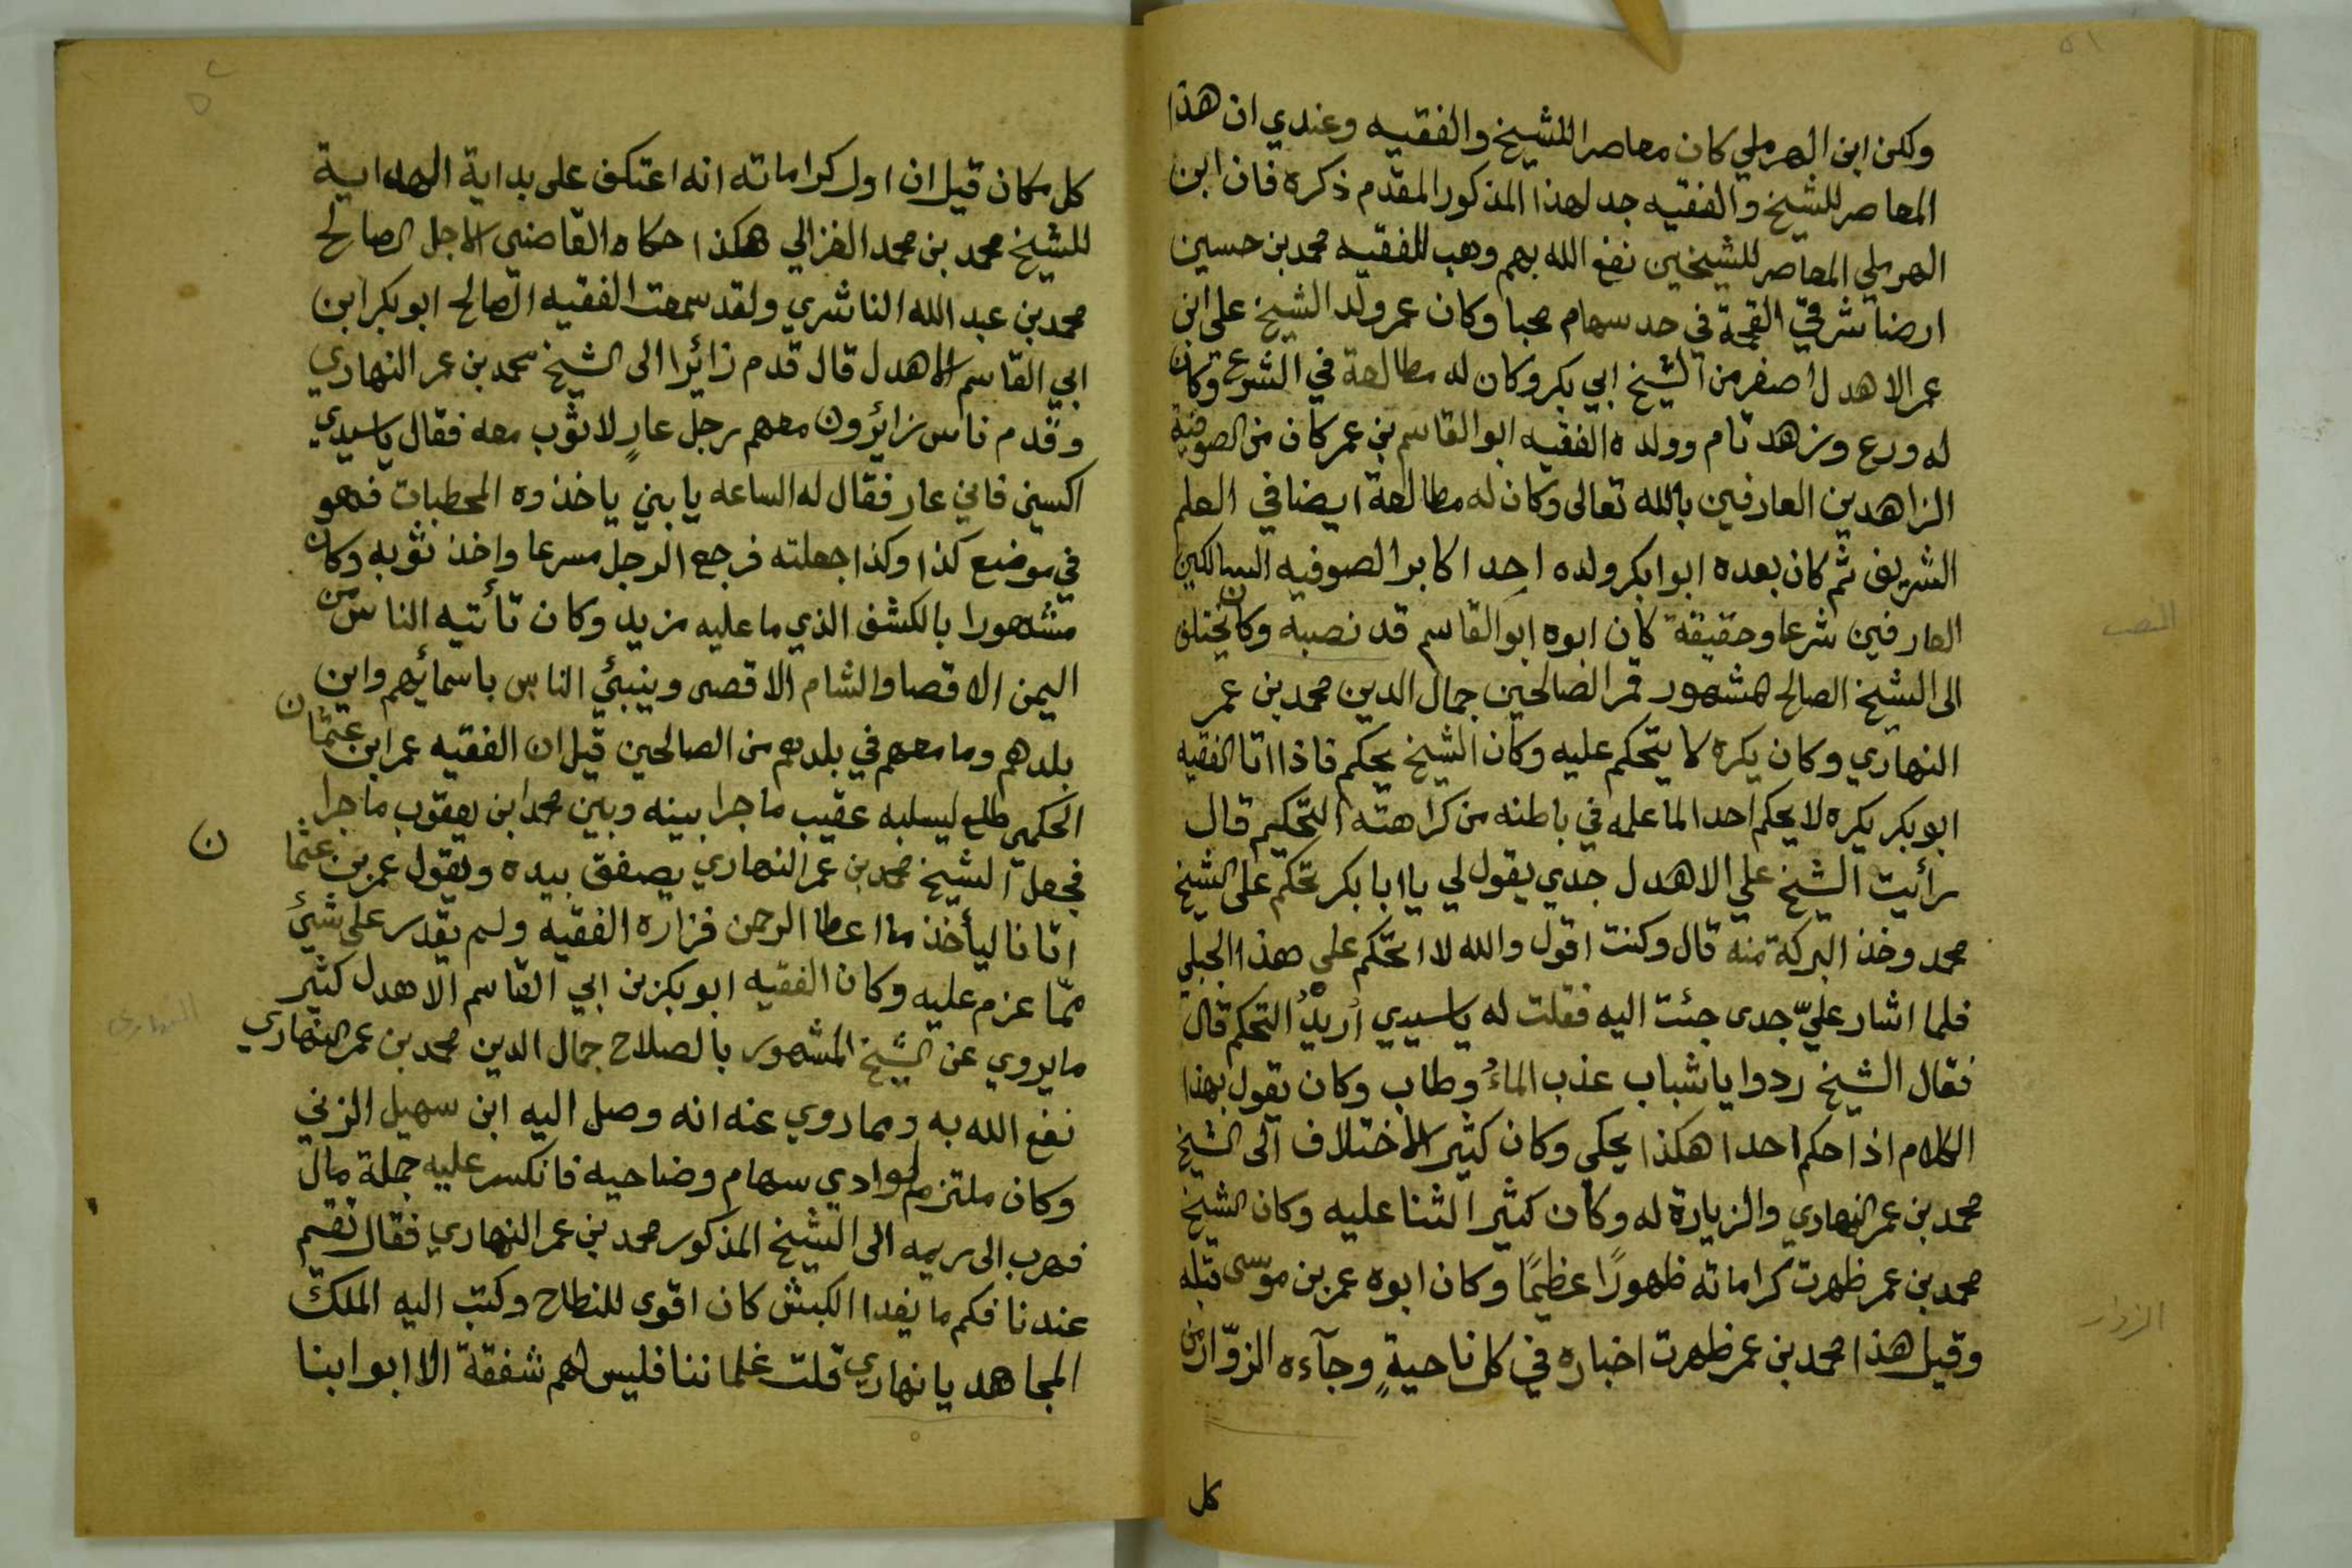 ولكن ابن الهرملي كان معاصرا للشيخ والفقيه وعندي ان هذا
المعاصر للشيخ والفقيه جد لهذا المذكور المقدم ذكره فان ابن
الهرملي المعاصر للشيخين نفع الله بهم وهب للفقيه محمد بن حسين
ارضا شرقي القحمة في حد سهام محبا وكان عمر ولد الشيخ علي ابن
عمر الاهدل اصغر من الشيخ ابي بكر وكان له مطالعة في الشرع وكان
له ورع وزهد تام وولده الفقيه ابو القاسم بن عمر كان من الصوفية
الزاهدين العارفين بالله تعالى وكان له مطالعة ايضا في العلم
الشريف ثم كان بعده ابوا بكر ولده احد اكابر الصوفيه السالكين
العارفين شرعا وحقيقة كان ابوه ابو القاسم قد نصبه وكان يختلف
الى الشيخ الصالح المشهور قمر الصالحين جمال الدين محمد بن عمر
النهاري وكان يكره لا يتحكم عليه وكان الشيخ يحكم فاذا اتا الفقيه
ابو بكر يكره لا يحكم احدا لما علمه في باطنه من كراهته التحكيم قال
رأيت الشيخ علي الاهدل جدي يقول لي يا ابا بكر تحكم على الشيخ
محمد وخذ البركة منه قال وكنت اقول والله لا اتحكم على هذا الجبلي
فلما اشار عليّ جدى جئت اليه فقلت له ياسيدي أريدُ التحكم قال
فقال الشيخ ردوا ياشباب عذب الماءُ وطاب وكان يقول بهذا
الكلام اذا حكم احدا هكذا يحكي وكان كثير الاختلاف الى الشيخ
محمد بن عمر النهاري والزيارة له وكان كثير الثنا عليه وكان الشيخ
محمد بن عمر ظهرت كراماته ظهورًا عظيمًا وكان ابوه عمر بن موسى قبله
وقيل هذا محمد بن عمر ظهرت اخباره في كل ناحيةٍ وجآءه الزوّار من
كل
النصب
الزوار
كل مكان قيل ان اول كراماته انه اعتكف على بداية الهداية
للشيخ محمد بن محمد الغزالي هكذا حكاه القاضي الاجل الصالح
محمد بن عبد الله الناشري ولقد سمعت الفقيه الصالح ابو بكر ابن
ابي القاسم الاهدل قال قدم زائرا الى الشيخ محمد بن عمر النهاري
وقدم ناس زائرون معهم رجل عارٍ لا ثوب معه فقال ياسيدي
اكسني فاني عار فقال له الساعه يابني ياخذوه المحطبات فهو
في موضع كذا وكذا جعلته فرجع الرجل مسرعا واخذ ثوبه وكان
مشهورا بالكشف الذي ما عليه مزيد وكان تأتيه الناس من
اليمن الاقصا والشام الاقصى وينبئ الناس باسمائهم واين
بلدهم وما معهم في بلدهم من الصالحين قيل ان الفقيه عمر ابن عثمان
الحكمي طلع ليسلبه عقيب ماجرا بينه وبين محمد ابن يعقوب ماجرا
فجعل الشيخ محمد بن عمر النهاري يصفق بيده ويقول عمر بن عثما
ن
اتانا ليأخذ ما اعطا الرحمن فزاره الفقيه ولم يقدر على شئ
ممّا عزم عليه وكان الفقيه ابو بكر بن ابي القاسم الاهدل كثير
مايروي عن الشيخ المشهور بالصلاح جمال الدين محمد بن عمر النهاري
نفع الله به ومما روي عنه انه وصل اليه ابن سهيل الزني
وكان ملتزم لوادي سهام وضاحيه فانكسر عليه جملة مال
فهرب الى ريمه الى الشيخ المذكور محمد بن عمر النهاري فقال تقيم
عندنا فكم ما يغدا الكبش كان اقوى للنطاح وكتب اليه الملك
المجاهد يا نهاري قلت غلماننا فليس لهم شفقة الا ابوابنا
النهاري